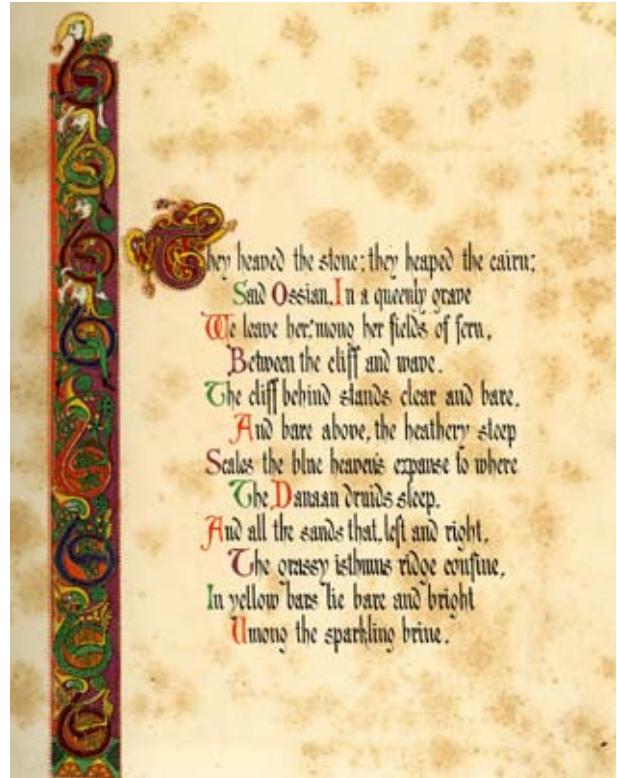 They heaved the stone; they heaped the cairn;
Said Ossian. In a queenly grave
We leave her, 'mong her fields of fern,
Between the cliff and wave.
The cliff behind stands clear and bare,
And bare above, the heathery steep
Scales the blue heaven's expanse to where
The Danaan druids sleep.
And all the sands that, left and right,
The grassy isthmus ridge confine,
In yellow bars lie bare and bright
Among the sparkling brine.